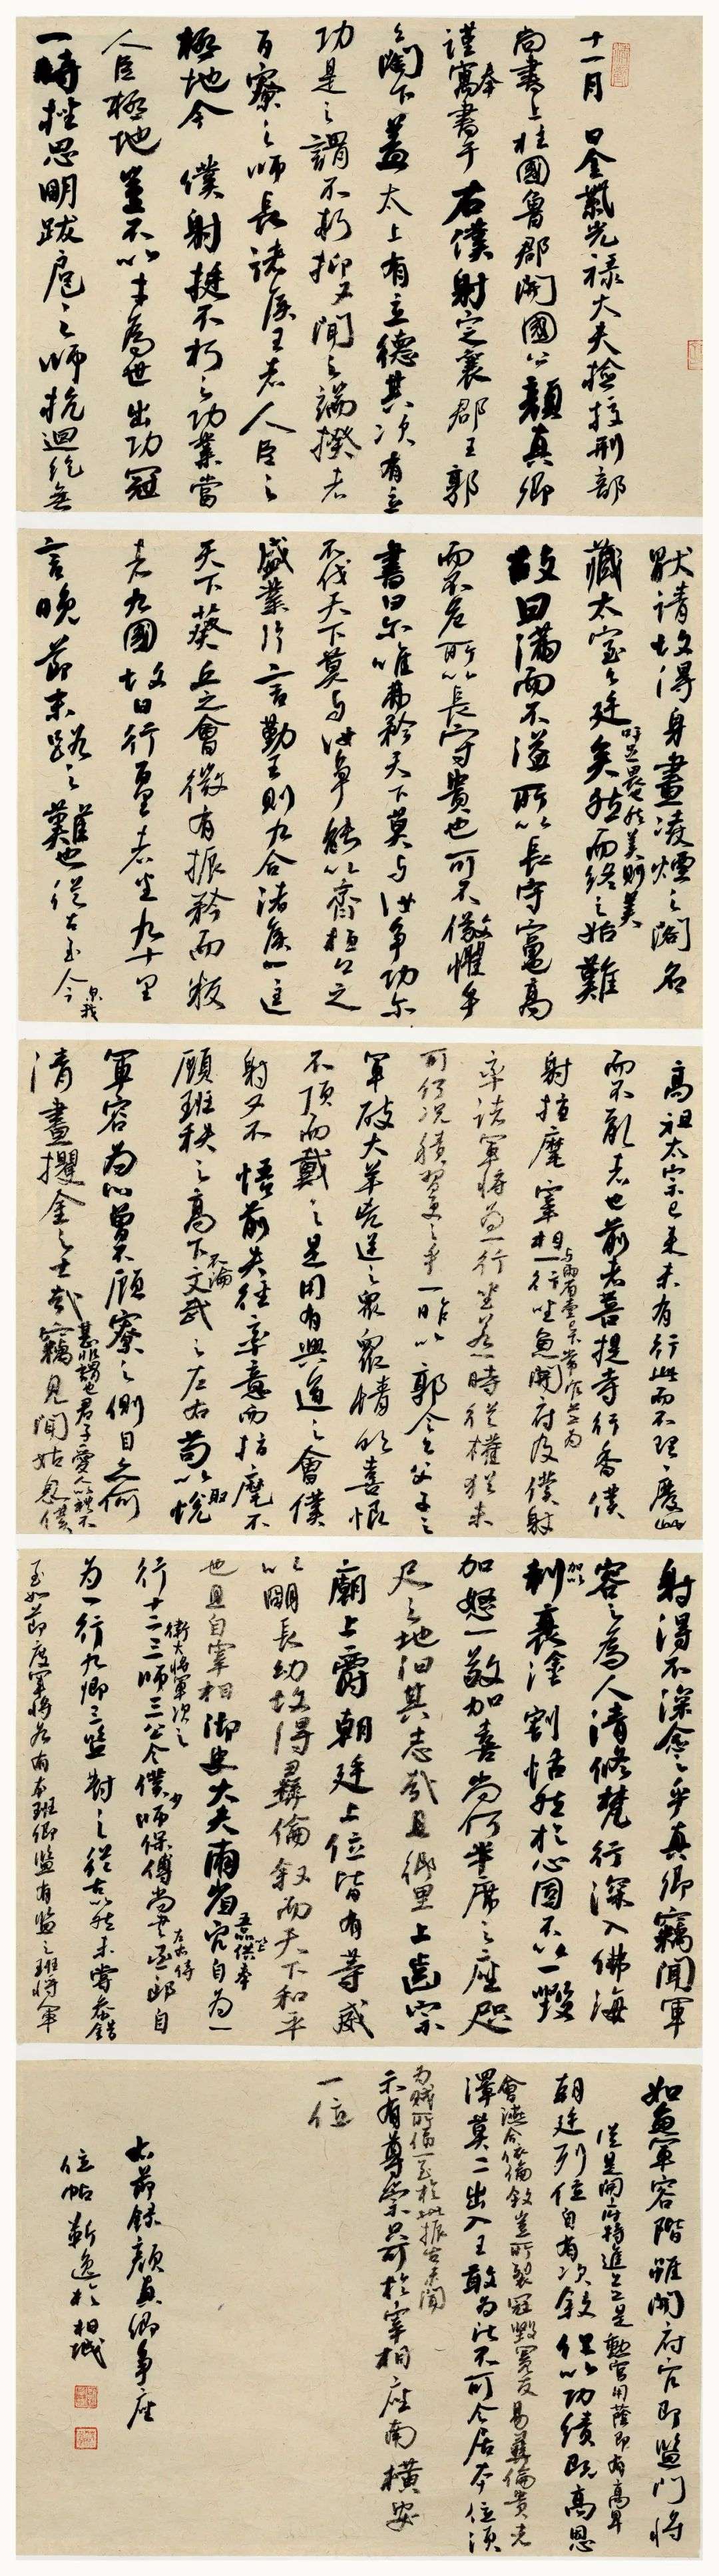 十一月 日金紫光禄大夫检挍刑部
尚書上柱國魯郡開國公顏真卿
謹奉寓書于右僕射定襄郡王郭
公閤下蓋太上有立德其次有立
功是之謂不朽抑又聞之端揆者
百寮之師長諸侯王者人臣之
極地今僕射挺不朽之功業當
人臣極地豈不以才為世出功冠
一時挫思明跋扈之師抗迴紇無
猒請故得身畫凌煙之閣名
藏太室之廷吁足畏也然美則美矣然而終之始難
故曰滿而不溢所以長守富高
而不危所以長守貴也可不儆懼乎
書曰尔唯弗矜天下莫与汝争功尔
不伐天下莫与汝争能以齊桓公之
盛業片言勤王則九合諸侯一匡
天下葵丘之會微有振矜而叛
者九國故曰行百里者半九十里
言晚節末路之難也從古至今自我
高祖太宗已来未有行此而不理廢此
而不亂者也前者菩提寺行香僕
射指麾宰相与兩省臺省已下常參官並為一行坐魚開府及僕射
率諸軍將為一行坐若一時從權猶未
可何況積習更行之乎一昨以郭令公父子之
軍破犬羊凶逆之眾眾情欣喜恨
不頂而戴之是用有興道之會僕
射又不悟前失徑率意而指麾不
顧班秩之高下不論文武之左右苟以取悅
軍容為心曾不顧百寮之側目亦何
清晝攫金之士哉甚非謂也君子愛人以禮不竊見聞姑息僕
射得不深念之乎真卿竊聞軍
容之為人清修梵行深入佛海
制裹塗割恬然於心固不以一毁
加怒一敬加喜尚何半席之座咫
尺之地汩其志哉且鄉里上齒宗
廟上爵朝廷上位皆有等威
以明長幼故得彝倫敘而天下和平
也且自宰相御史大夫兩省五品供奉官自為一
行十二衛大將軍次之三師三公令僕少師保傅尚書左右丞侍郎自
為一行九卿三監對之從古以然未嘗參錯
至如節度軍將各有本班卿監有監之班將軍
如魚軍容階雖開府官即監門將
從是開府特進並是勳官用蔭即有高卑
朝廷列位自有次敘但以功績既高恩
會讌合依倫敘豈可裂冠毀冕反易彝倫貴者
澤莫二出入王敢為比不可令居本位須
為賤所逼一至於此振古未聞
示有尊崇只可於宰相座南橫安
一位
右節錄顏真卿争座
位帖 靳逸於相城